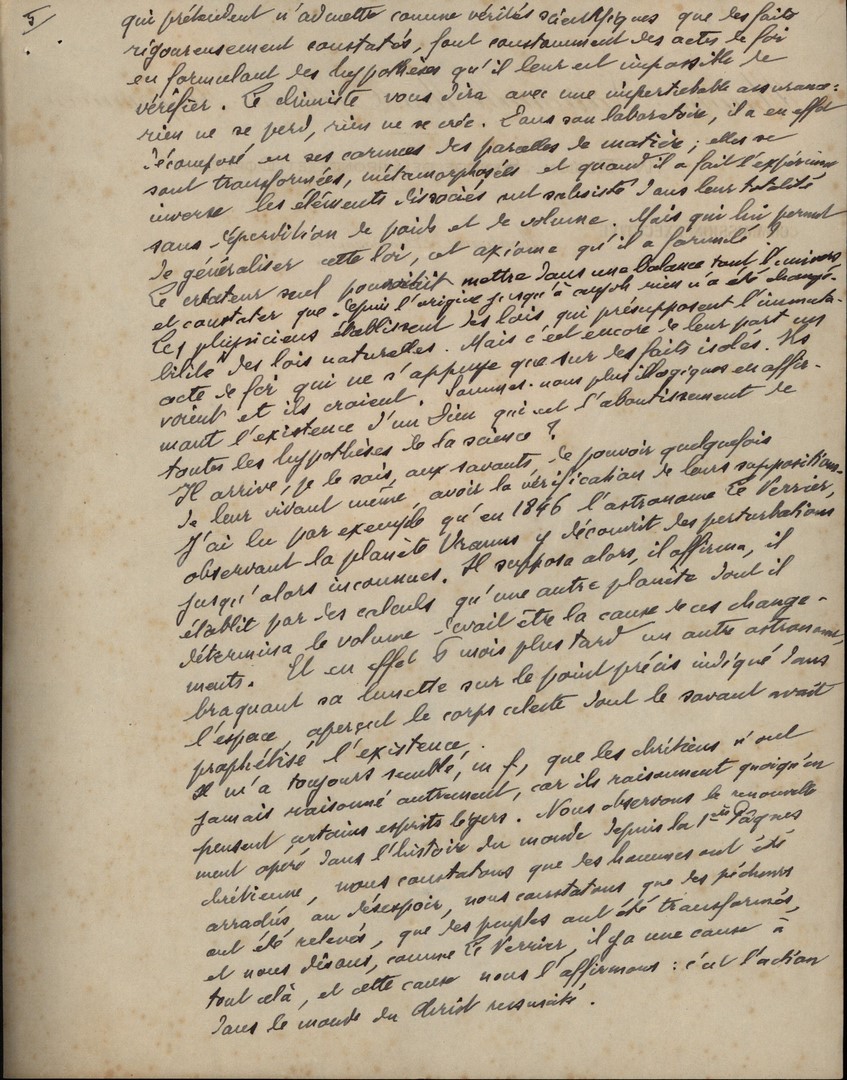 5/
qui prétendent n'admettre comme vérités scientifiques que des faits
rigoureusement constatés, font constamment des actes de foi
en formulant des hypothèses qu'il leur est impossible de
vérifier. Le chimiste vous dira avec une imperturbable assurance:
rien ne se perd, rien ne se crée. Dans son laboratoire, il a en effet
décomposé en ses cornues des parcelles de matière; elles se
sont transformées, métamorphosées et quand il a fait l'expérience
inverse les éléments dissociés ont subsisté dans leur totalité
sans déperdition de poids et de volume. Mais qui lui permet
de généraliser cette loi, cet axiome qu'il a formulé?
Le créateur seul pourrait mettre dans une balance tout l'univers
et constater que depuis l'origine jusqu'à aujoh rien n'a été changé.
Les physiciens établissent des lois qui présupposent l'immuta-
bilité des lois naturelles. Mais c'est encore de leur part un
acte de foi qui ne s'appuye que sur des faits isolés. Ils
voient et ils croient. Sommes-nous plus illogiques en affir-
mant l'existence d'un Dieu qui est l'aboutissement de
toutes les hypothèses de la science?
Il arrive, je le sais, aux savants de pouvoir quelquefois
de leur vivant même, avoir la vérification de leurs suppositions.
J'ai lu par exemple qu'en 1846 l'astronome Le Verrier,
observant la planète Uranus y découvrit des perturbations
jusqu'alors inconnues. Il supposa alors, il affirma, il
établit par des calculs qu'une autre planète dont il
détermina le volume devait être la cause de ces change-
ments. Et en effet 6 mois plus tard un autre astronome,
braquant sa lunette sur le point précis indiqué dans
l'espace, aperçut le corps céleste dont le savant avait
prophétisé l'existence.
Il m'a toujours semblé, m f, que les chrétiens n'ont
jamais raisonné autrement, car ils raisonnent quoiqu'en
pensent certains esprits légers. Nous observons le renouvelle
ment opéré dans l'histoire du monde depuis la 1ère Pâques
chrétienne, nous constatons que des hommes ont été
arrachés au désespoir, nous constatons que des pécheurs
ont été relevés, que des peuples ont été transformés,
et nous disons, comme Le Verrier, il y a une cause à
tout celà, et cette cause nous l'affirmons: c'est l'action
dans le monde du Christ ressuscité.